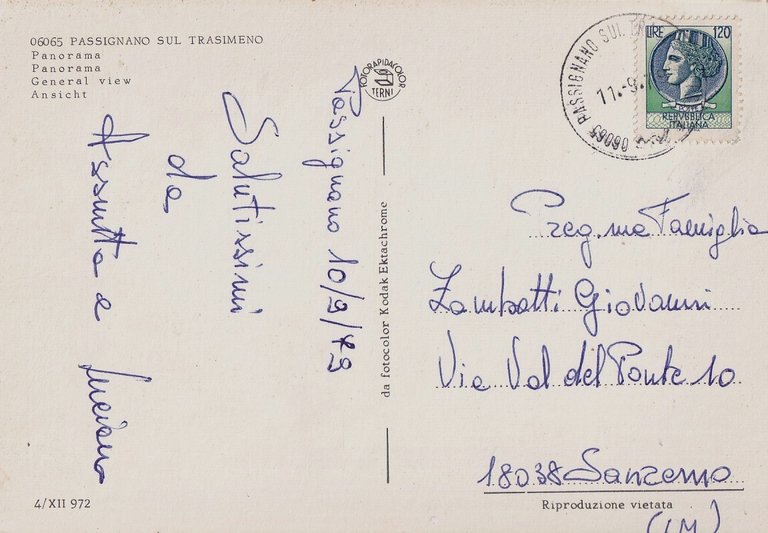 06065 PASSIGNANO SUL TRASIMENO
Panorama
Panorama
General view
Ansicht
FOTORAPIDACOLOR
TERNI
Passignano 10/9/79
Salutissimi
da
Assunta e Luciano
da fotocolor Kodak Ektachrome
PASSIGNANO SUL
11.-9.
06065
LIRE 120
REPVBBLICA
ITALIANA
Preg.ma Famiglia
Zambotti Giovanni
Via Val del Ponte 10
18038 Sanremo
(IM)
4/XII 972
Riproduzione vietata